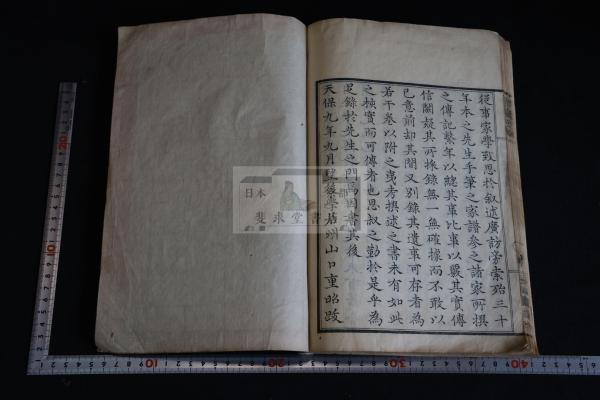 從事家學致思於叙述廣訪旁索殆三十
年本之先生手筆之家譜參之諸家所撰
之傳記繫年以總其事比事以覈其實傳
信闕疑其所採錄無一無確據而不敢以
己意前却其間又別錄其遺事可存者為
若干卷以附之夷考撰述之書未有如此
之核實而可傳者也思叔之勤於是乎為
足錄於先生之門焉因書其後
天保九年九月望後學居
山口重昭跋
日本
斐求堂書
10
20
30
40